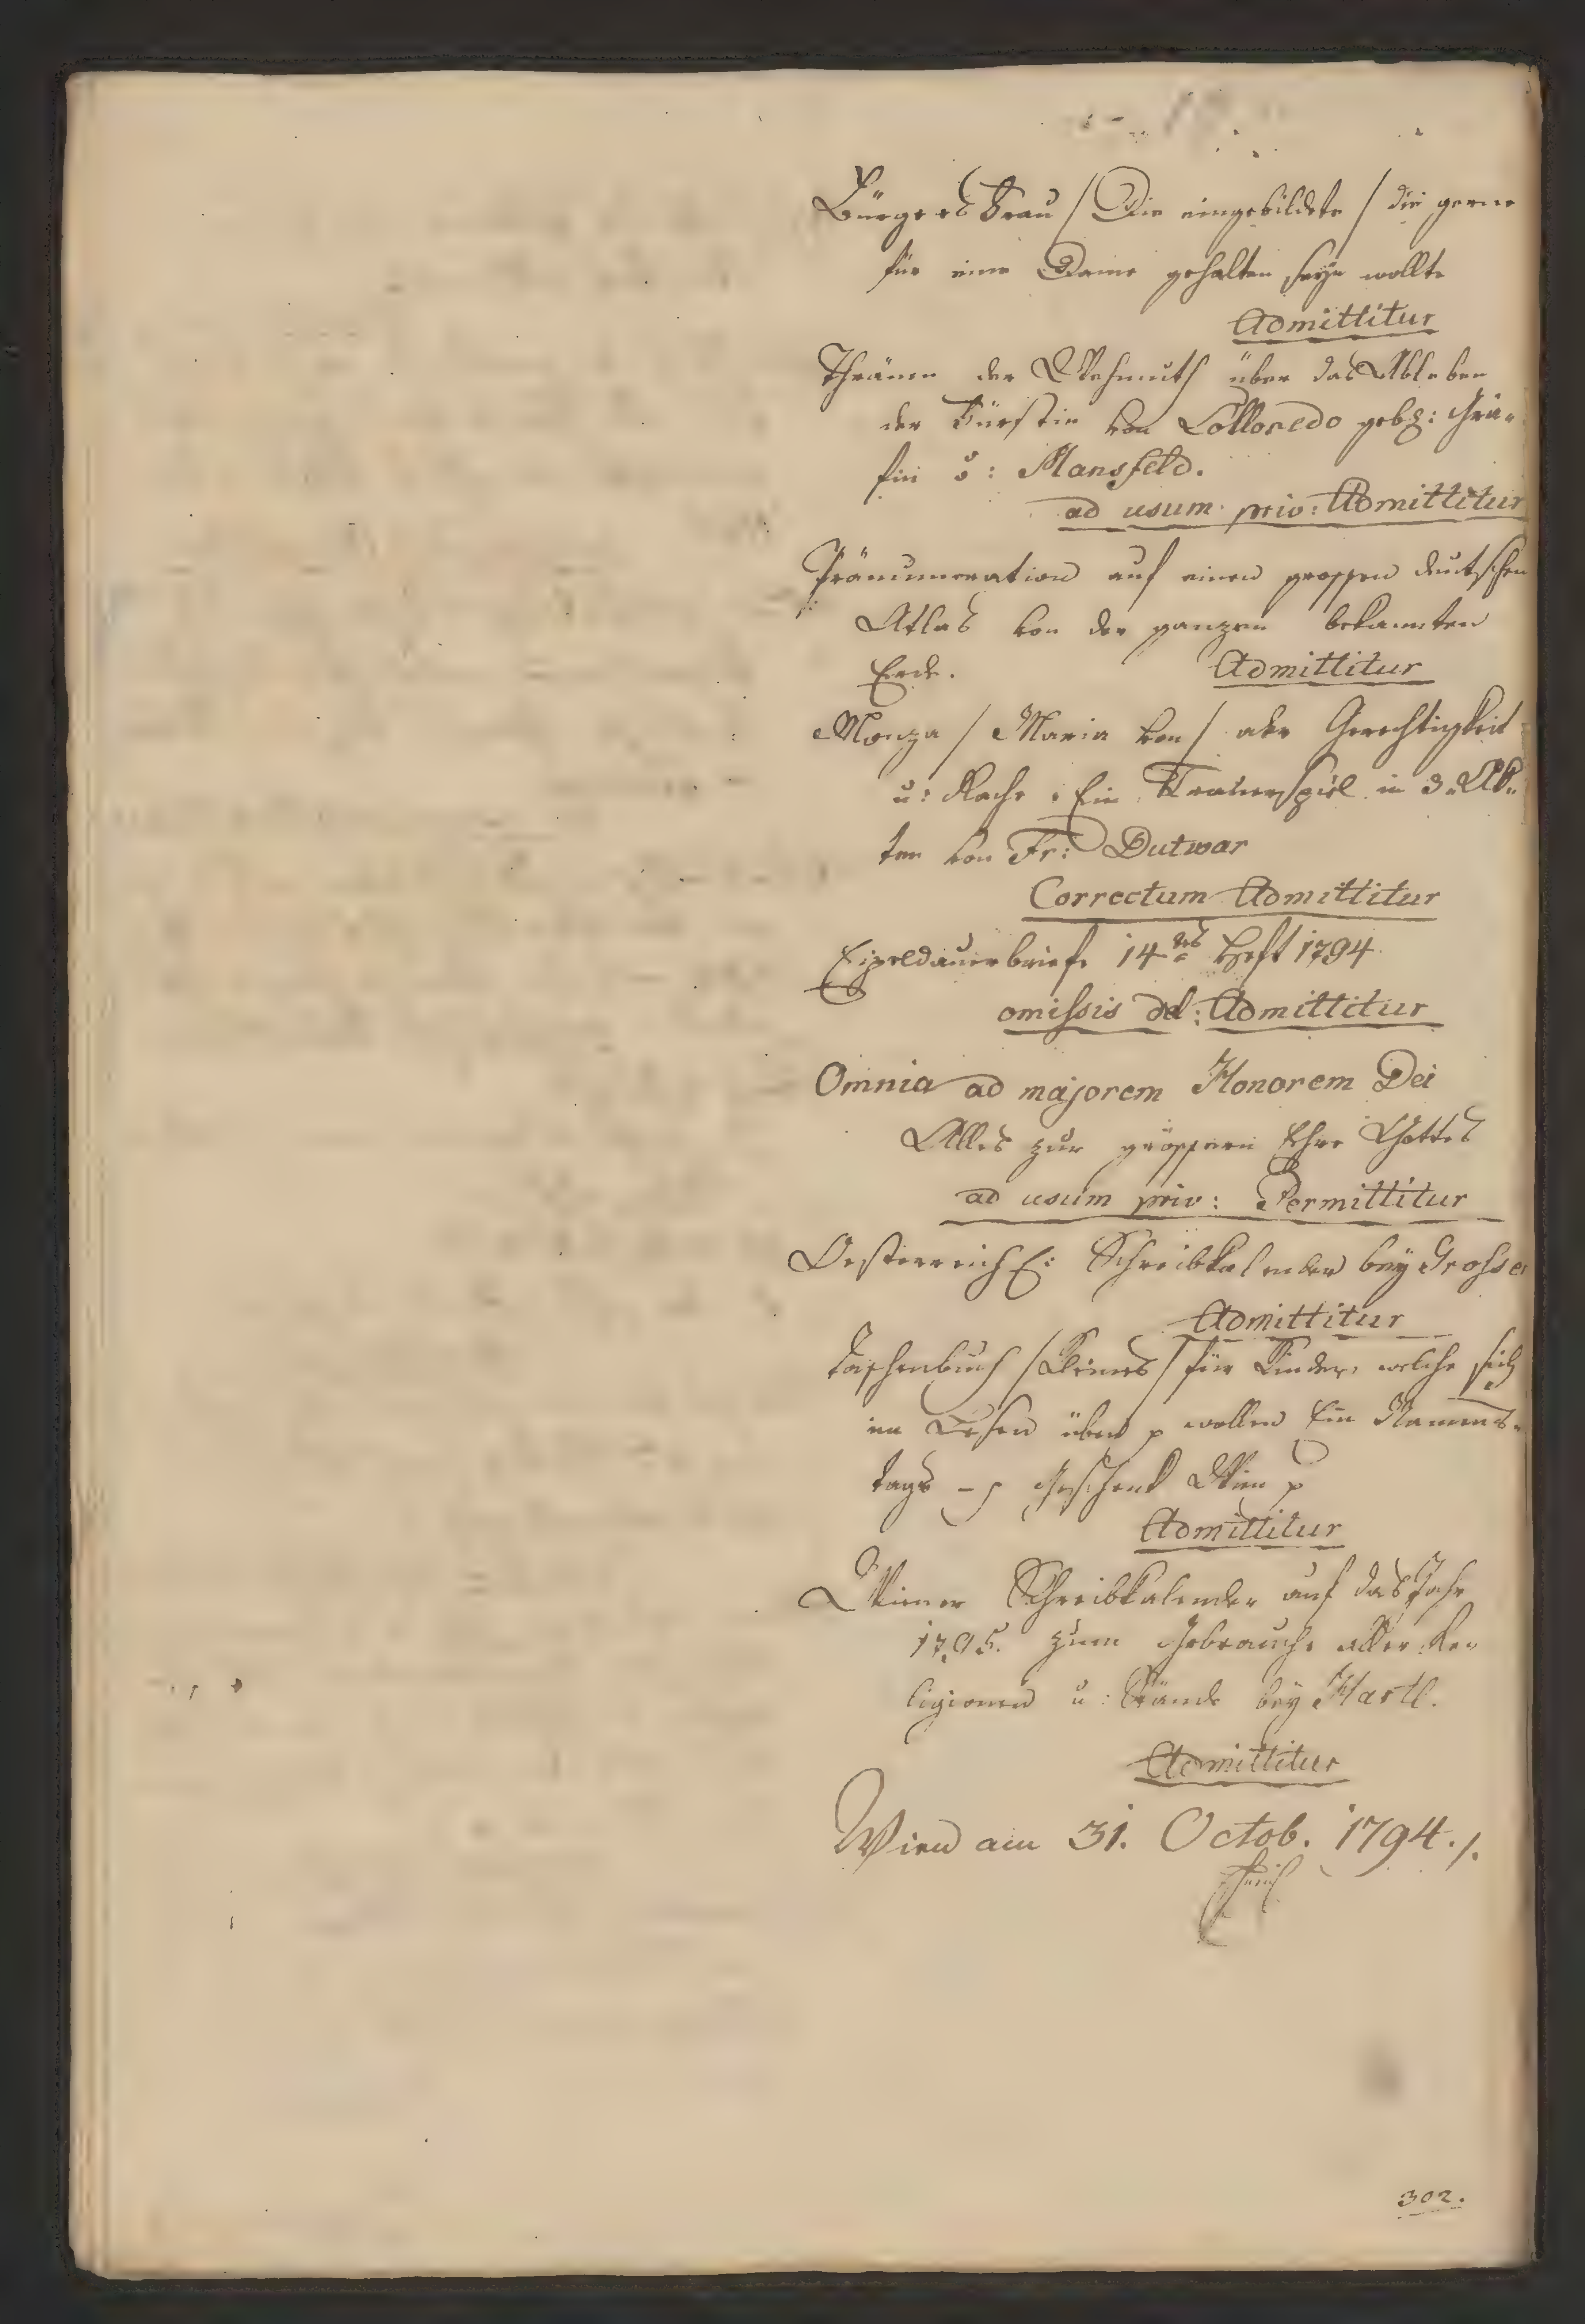 Bürgers Frau / Die eingebildete / die gerne
für eine Dame gehalten seyn wollte
Admittitur
Thränen der Wehmuth über das Ableben
der Fürstin von Colloredo gebohr: Grä-
fin v: Mansfeld.
ad usum priv: Admittitur
Pränumeration auf einen grossen deutschen
Atlas von der ganzen bekannten
Erde. Admittitur
Monza / Maria von / oder Gerechtigkeit
u: Rache. Ein Trauerspiel in 3. Ak-
ten von Fr: Dutwar
Correctum Admittitur
Eipeldauerbriefe 14tes Heft 1794
omissis del: Admittitur
Omnia ad majorem Honorem Dei
Alles zur grössern Ehre Gottes
ad usum priv: Permittitur
Oesterreich: Schreibkalender bey Grosser
Admittitur
Taschenbuch / Kleines / für Kinder, welche sich
im Lesen üben wollen Ein Namens-
tags - Geschenk Wien
Admittitur
Wiener Schreibkalender auf das Jahr
1795. zum Gebrauche aller Re-
ligionen u: Stände bey Hartl.
Admittitur
Wien am 31. Octob. 1794./.
302.